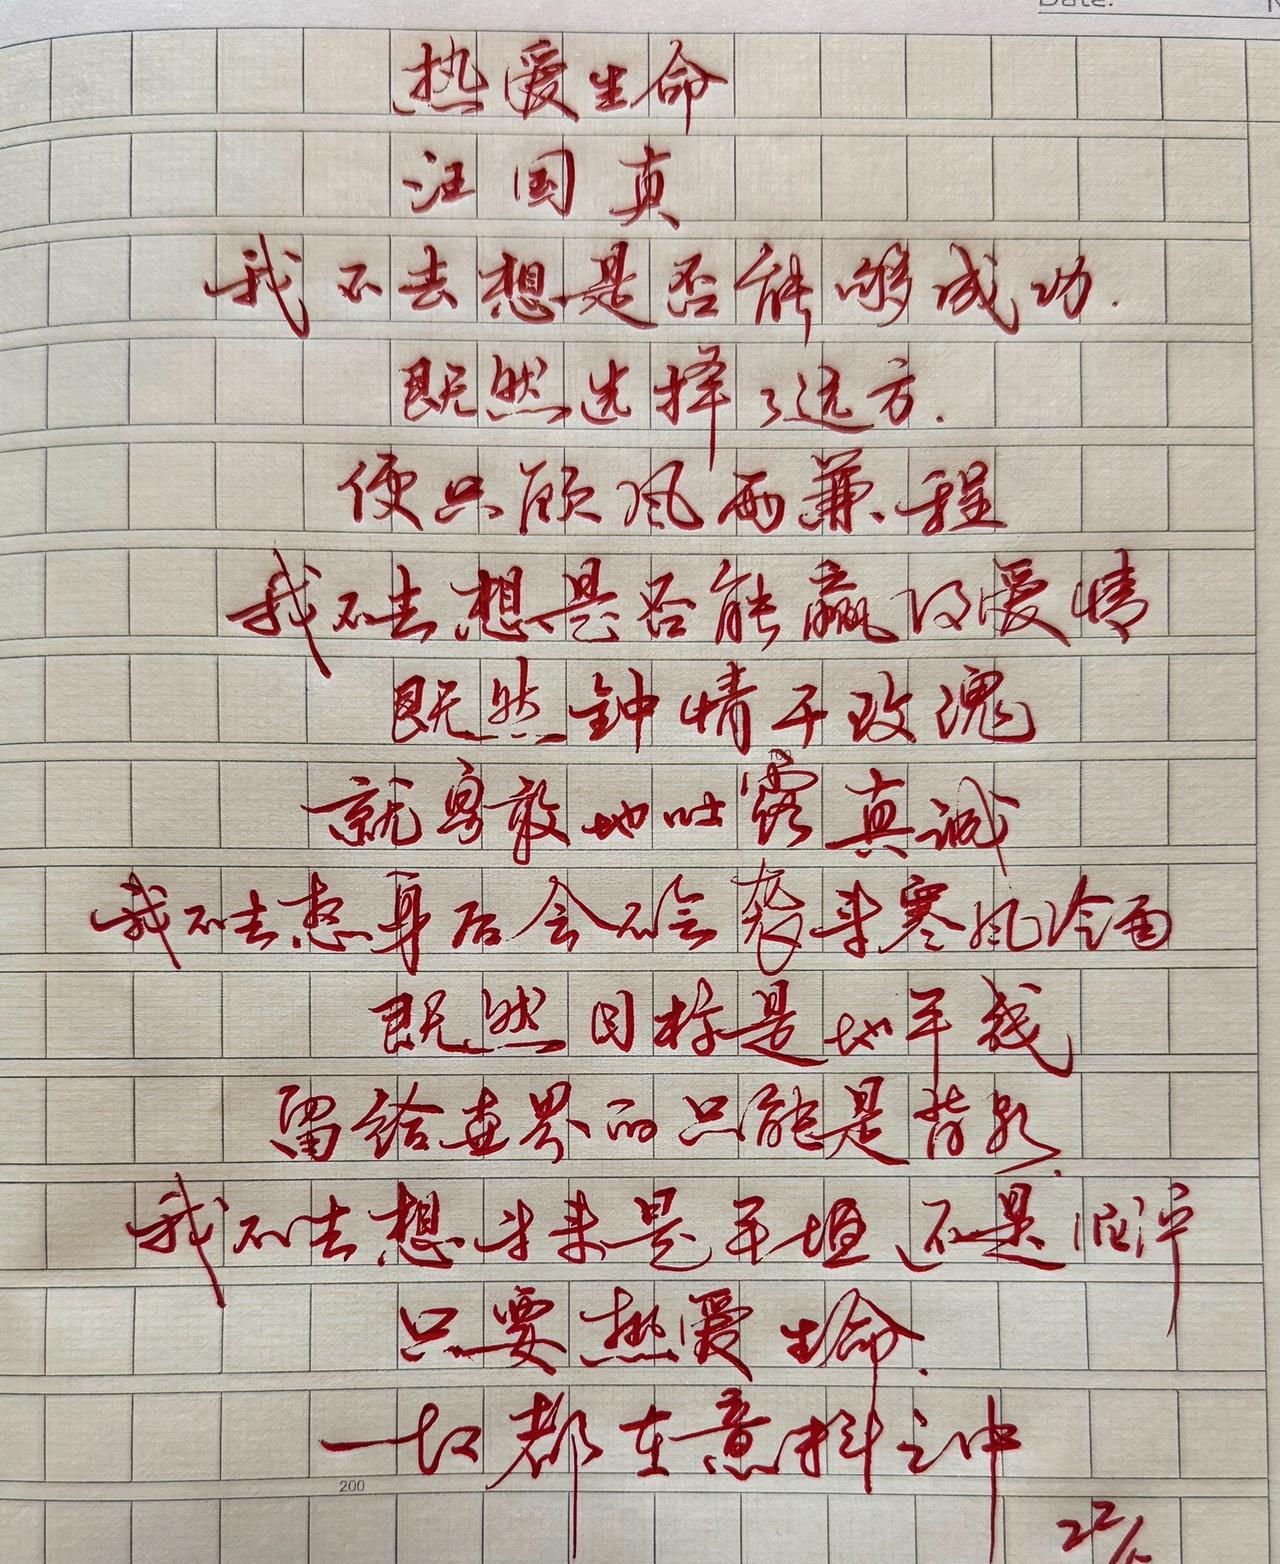 Date:
热爱生命
汪国真
我不去想是否能够成功.
既然选择了远方.
便只顾风雨兼程
我不去想是否能赢得爱情
既然钟情于玫瑰
100
就勇敢地吐露真诚
我不去想身后会不会袭来寒风冷雨
既然目标是地平线
留给世界的只能是背影
我不去想未来是平坦还是泥泞
只要热爱生命.
一切都在意料之中
200